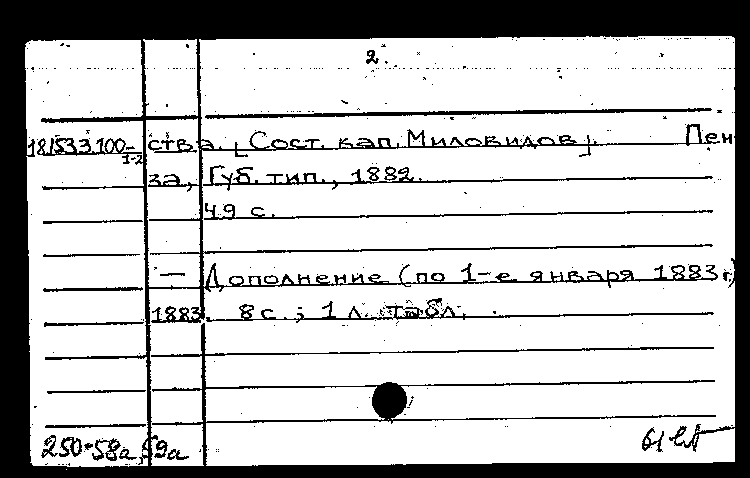 2.
181533.100- ства. [Сост. кап. Миловидов]. Пен-
1-2
за, Губ. тип., 1882.
49 с.
— Дополнение (по 1-е января 1883 г.)
1883. 8 с.; 1 л. табл.
250-58а, 59а